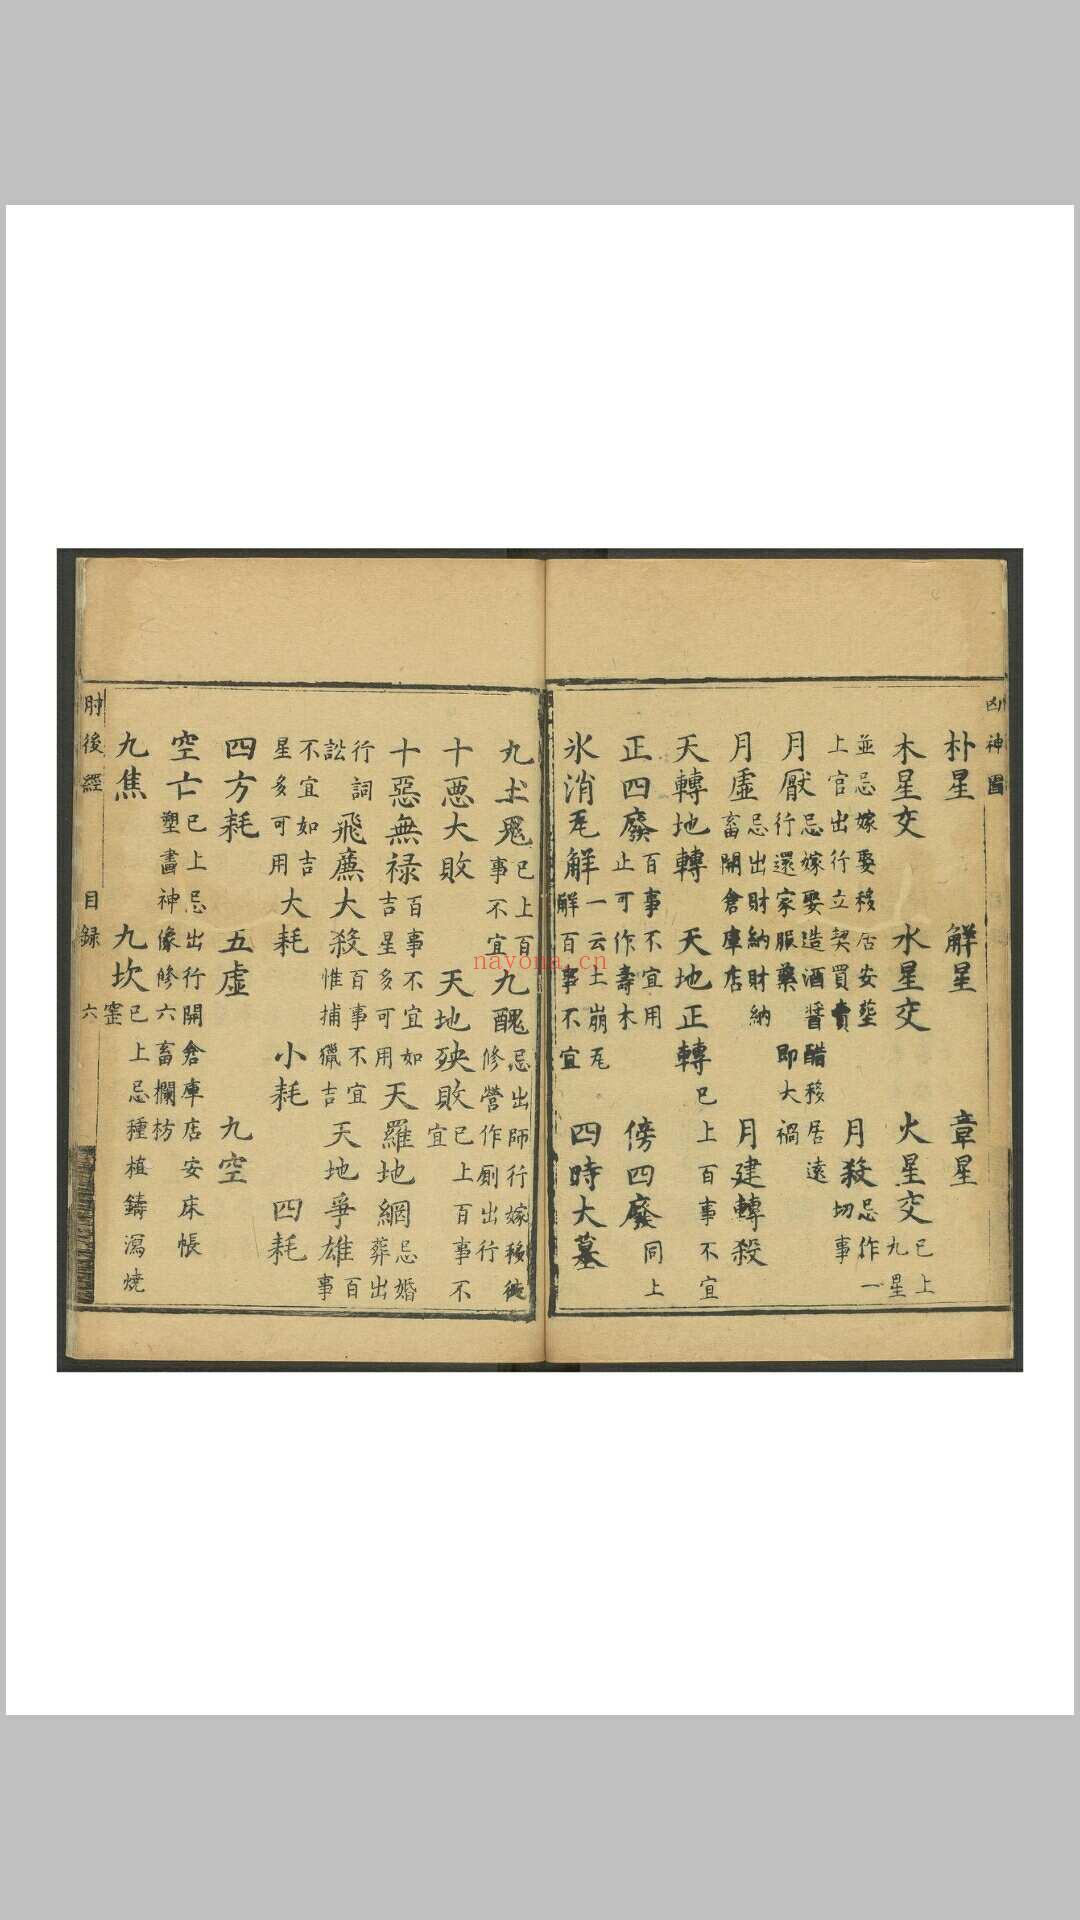 凶神圖
朴星 觧星 章星
木星交 水星交 火星交 已上九星
並忌嫁娶移居安塟上官出行立契買賣 月殺 忌作一切事
月厭 忌嫁娶造酒醬醋移居遠行還家服藥即大禍
月虛 忌出財納財納畜開倉庫店 月建轉殺
天轉地轉 天地正轉 已上百事不宜
正四廢 百事不宜用止可作壽木 傍四廢 同上
氷消瓦解 一云土崩瓦解百事不宜 四時大墓
九土鬼 已上百事不宜 九醜 忌出師行嫁移徙修營作廁出行
十惡大敗 天地殃敗 已上百事不宜
十惡無禄 百事不宜如吉星多可用 天羅地網 忌婚葬出
行詞訟 飛廉大殺 百事不宜惟捕獵吉 天地爭雄 百事
不宜如吉星多可用 大耗 小耗 四耗
四方耗 五虛 九空
空亡 已上忌出行開倉庫店安床帳塑畫神像修六畜欄枋
九焦 九坎 已上忌種植鑄瀉燒窰
肘後經 目録 六
nayona.cn